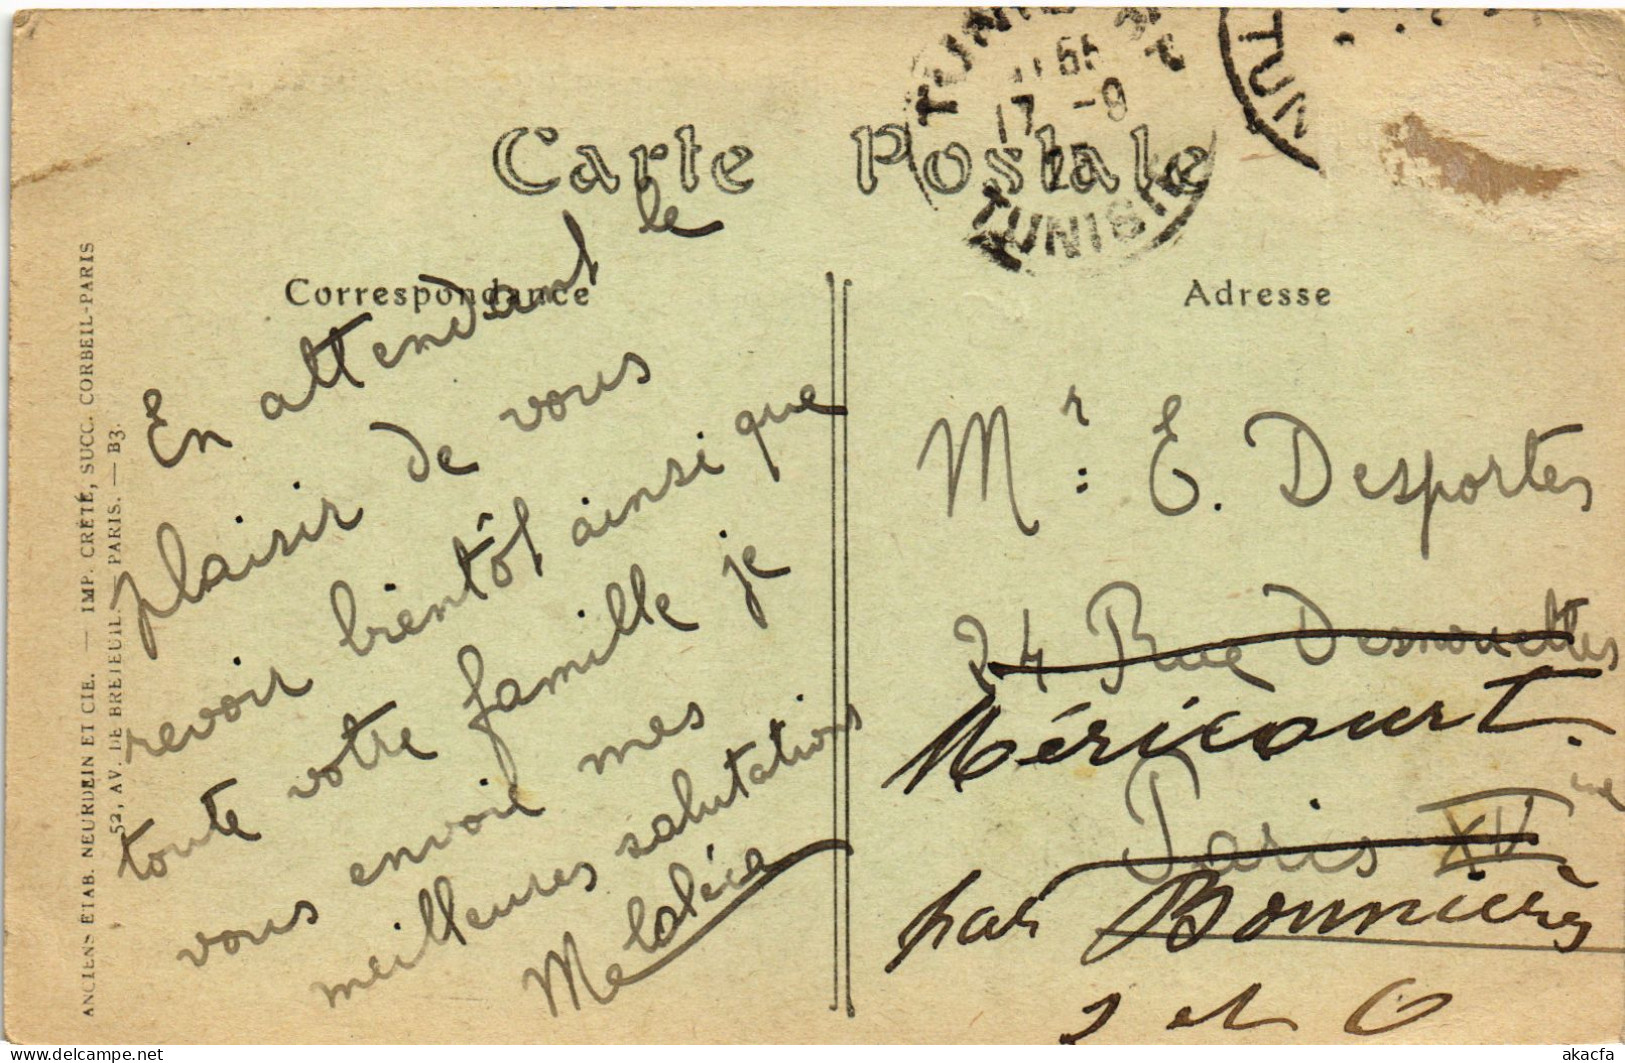 Carte Postale
TUNIS
17 - 9
TUNISIE
TUN
Correspondance
Adresse
En attendant le
plaisir de vous
revoir bientôt ainsi que
toute votre famille je
vous envoie mes
meilleures salutations
Mr: E. Desportes
24 Rue Desnouettes
Méricourt.
Paris XV
par Bonnières
S et O
ANCIENS ETAB. NEURDEIN ET CIE. — IMP. CRÉTÉ, SUCC. CORBEIL-PARIS
52, AV. DE BRETEUIL. PARIS. — B3.
akacfa